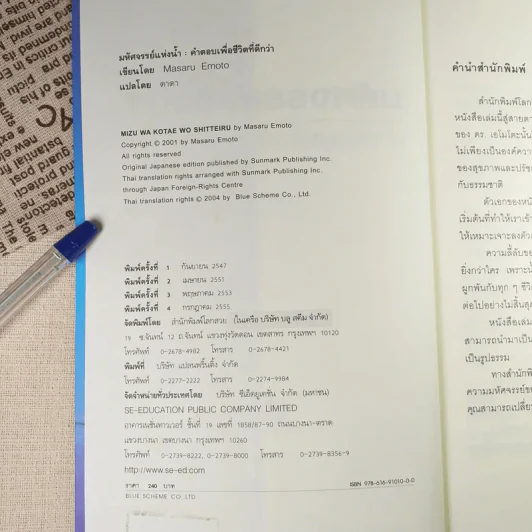 มหัศจรรย์แห่งน้ำ : คำตอบเพื่อชีวิตที่ดีกว่า
เขียนโดย Masaru Emoto
แปลโดย ดาดา
MIZU WA KOTAE WO SHITTEIRU by Masaru Emoto
Copyright © 2001 by Masaru Emoto
All rights reserved
Original Japanese edition published by Sunmark Publishing Inc.
Thai translation rights arranged with Sunmark Publishing Inc.
through Japan Foreign-Rights Centre
Thai translation rights © 2004 by Blue Scheme Co., Ltd.
พิมพ์ครั้งที่ 1 กันยายน 2547
พิมพ์ครั้งที่ 2 เมษายน 2551
พิมพ์ครั้งที่ 3 พฤษภาคม 2553
พิมพ์ครั้งที่ 4 กรกฎาคม 2555
จัดพิมพ์โดย สำนักพิมพ์โลกสวย (ในเครือ บริษัท บลู สคีม จำกัด)
15 ซ.จันทน์ 12 ถ.จันทน์ แขวงทุ่งวัดดอน เขตสาทร กรุงเทพฯ 10120
โทรศัพท์ 0-2678-4982 โทรสาร 0-2678-4421
พิมพ์ที่ บริษัท แปลนพริ้นติ้ง จำกัด
โทรศัพท์ 0-2277-2222 โทรสาร 0-2274-9984
จัดจำหน่ายทั่วประเทศโดย บริษัท ซีเอ็ดยูเคชัน จำกัด (มหาชน)
SE-EDUCATION PUBLIC COMPANY LIMITED
อาคารเนชั่นทาวเวอร์ ชั้นที่ 19 เลขที่ 1858/87-90 ถนนบางนา-ตราด
แขวงบางนา เขตบางนา กรุงเทพฯ 10260
โทรศัพท์ 0-2739-8222, 0-2739-8000 โทรสาร 0-2739-8356-9
http://www.se-ed.com
ราคา 240 บาท
ISBN 978-616-91010-0-0
BLUE SCHEME CO.,LTD.
คำนำสำนักพิมพ์
สำนักพิมพ์โลก
หนังสือเล่มนี้สู่สายตา
ของ ดร. เอโมโตะนั้น
ไม่เพียงเป็นองค์ความ
ของสุขภาพและปรัช
กับธรรมชาติ
ตัวเอกของหนั
เริ่มต้นที่ทำให้เราเข้า
ให้เหมาะเจาะลงตัว
ความลี้ลับขอ
ยิ่งกว่าใคร เพราะน้
ผูกพันกับทุก ๆ ชีวิ
ต่อไปอย่างไม่สิ้นสุด
หนังสือเล่ม
สามารถนำมาเป็น
เป็นรูปธรรม
ทางสำนักพิ
ความมหัศจรรย์ข
คุณสามารถเปลี่ย